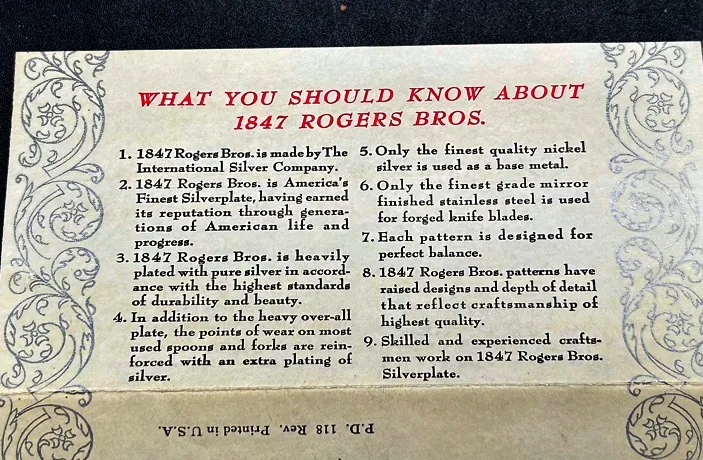 WHAT YOU SHOULD KNOW ABOUT
1847 ROGERS BROS.
1. 1847 Rogers Bros. is made by The
International Silver Company.
2. 1847 Rogers Bros. is America's
Finest Silverplate, having earned
its reputation through genera-
tions of American life and
progress.
3. 1847 Rogers Bros. is heavily
plated with pure silver in accord-
ance with the highest standards
of durability and beauty.
4. In addition to the heavy over-all
plate, the points of wear on most
used spoons and forks are rein-
forced with an extra plating of
silver.
5. Only the finest quality nickel
silver is used as a base metal.
6. Only the finest grade mirror
finished stainless steel is used
for forged knife blades.
7. Each pattern is designed for
perfect balance.
8. 1847 Rogers Bros. patterns have
raised designs and depth of detail
that reflect craftsmanship of
highest quality.
9. Skilled and experienced crafts-
men work on 1847 Rogers Bros.
Silverplate.
P.D. 118 Rev. Printed in U.S.A.